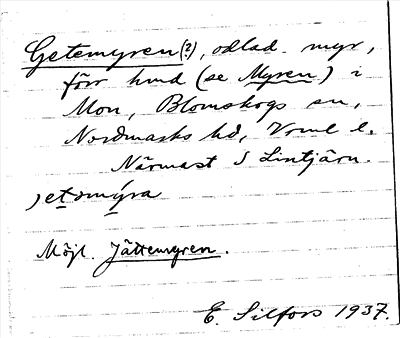 Getemyren (?), odlad myr,
förr hmd (se Myren) i
Mon, Blomskogs sn,
Nordmarks hd, Vrml l.
Närmast S Lintjärn.
jetəmýra
Möjl. Jättemyren.
E. Silfors 1937.